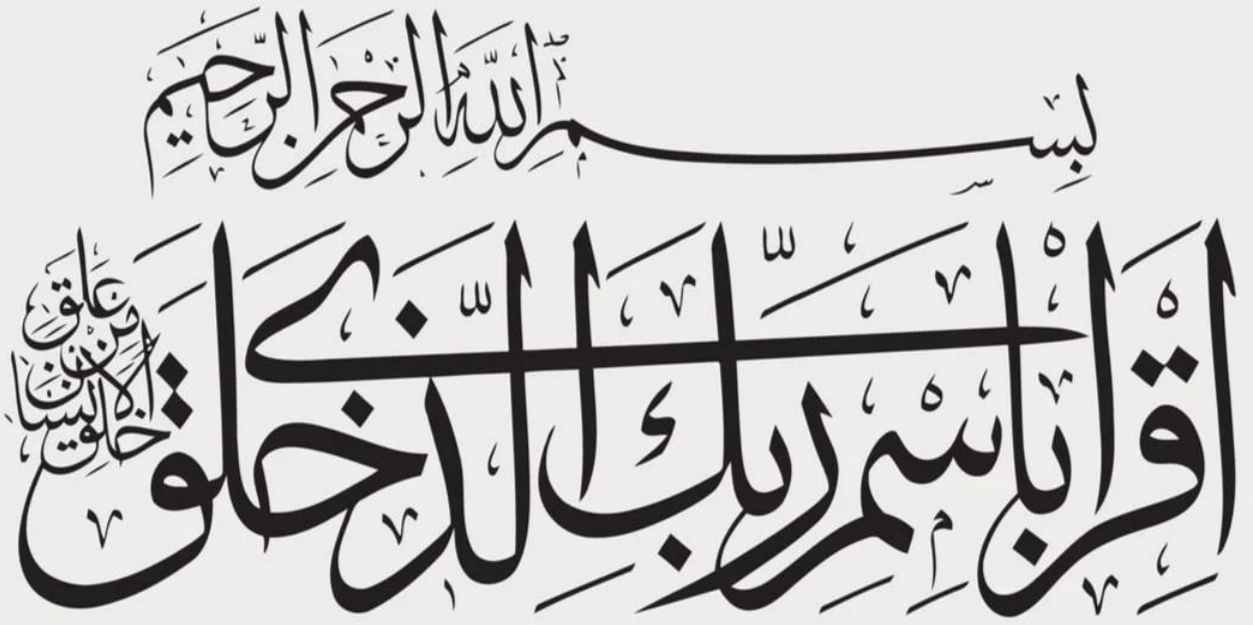 بسم الله الرحمن الرحيم
اقرأ باسم ربك الذي خلق
خلق الإنسان من علق